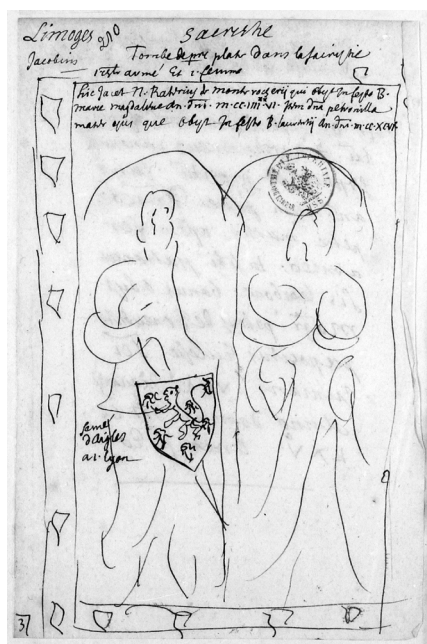 Limoges 210 sacristie
Jacobins Tombe de pre plate dans la sacristie
1 est armé Et 1. femme
hic Jacet N. Raterius de monte rocherij qui obyt In festo B.
marie magdalene An. dni. m. cc. IIIIxx. VI. Item dna petronilla
mater ejus que obyt In festo B. laurentij An. dni. m. cc. XCVI
semé
d'aigles
a 1. lyon
3